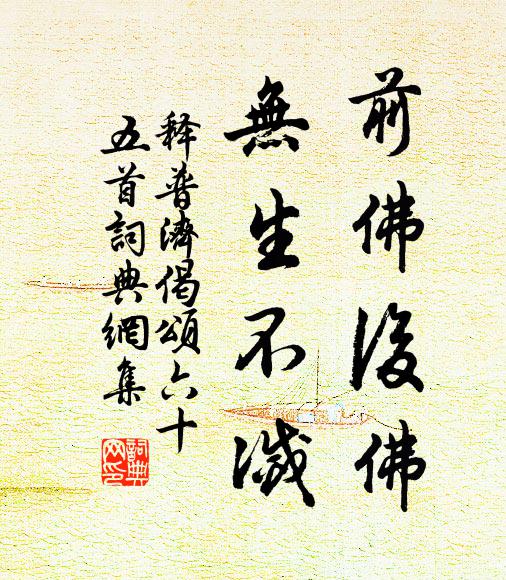 前佛後佛
無生不滅
释普濟偈頌六十
五首詞典網集
詞典
网印